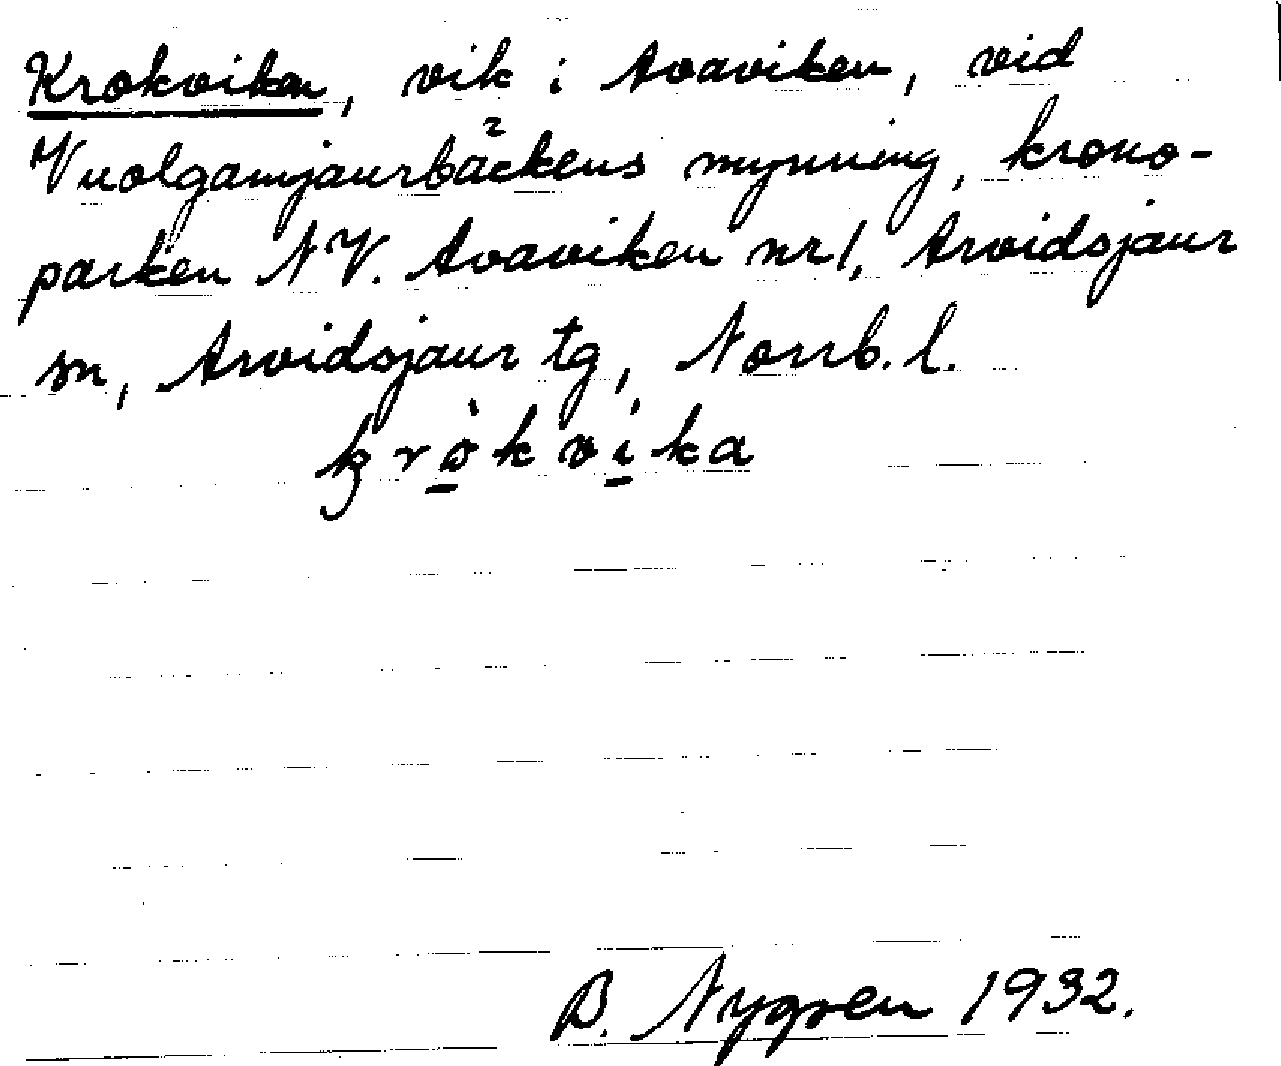 Krokviken, vik i Avaviken, vid
Vuolgamjaurbäckens mynning, krono-
parken N V. Avaviken nr 1, Arvidsjaur
sn, Arvidsjaur tg, Norrb. l.
kròkvìka
B. Nygren 1932.